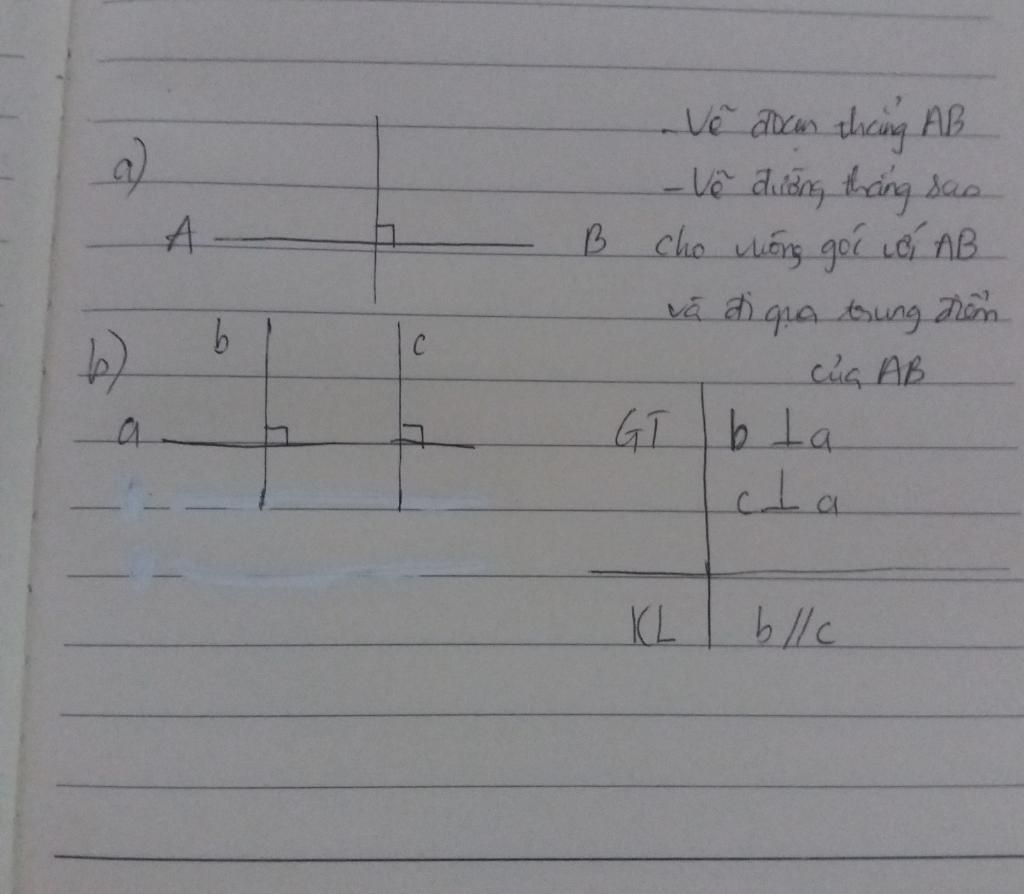 - Vẽ đoạn thẳng AB
a)
- Vẽ đường thẳng sao
A B cho vuông goí với AB
và đi qua trung điểm
b) b c của AB
a GT b ⊥ a
c ⊥ a
KL b // c